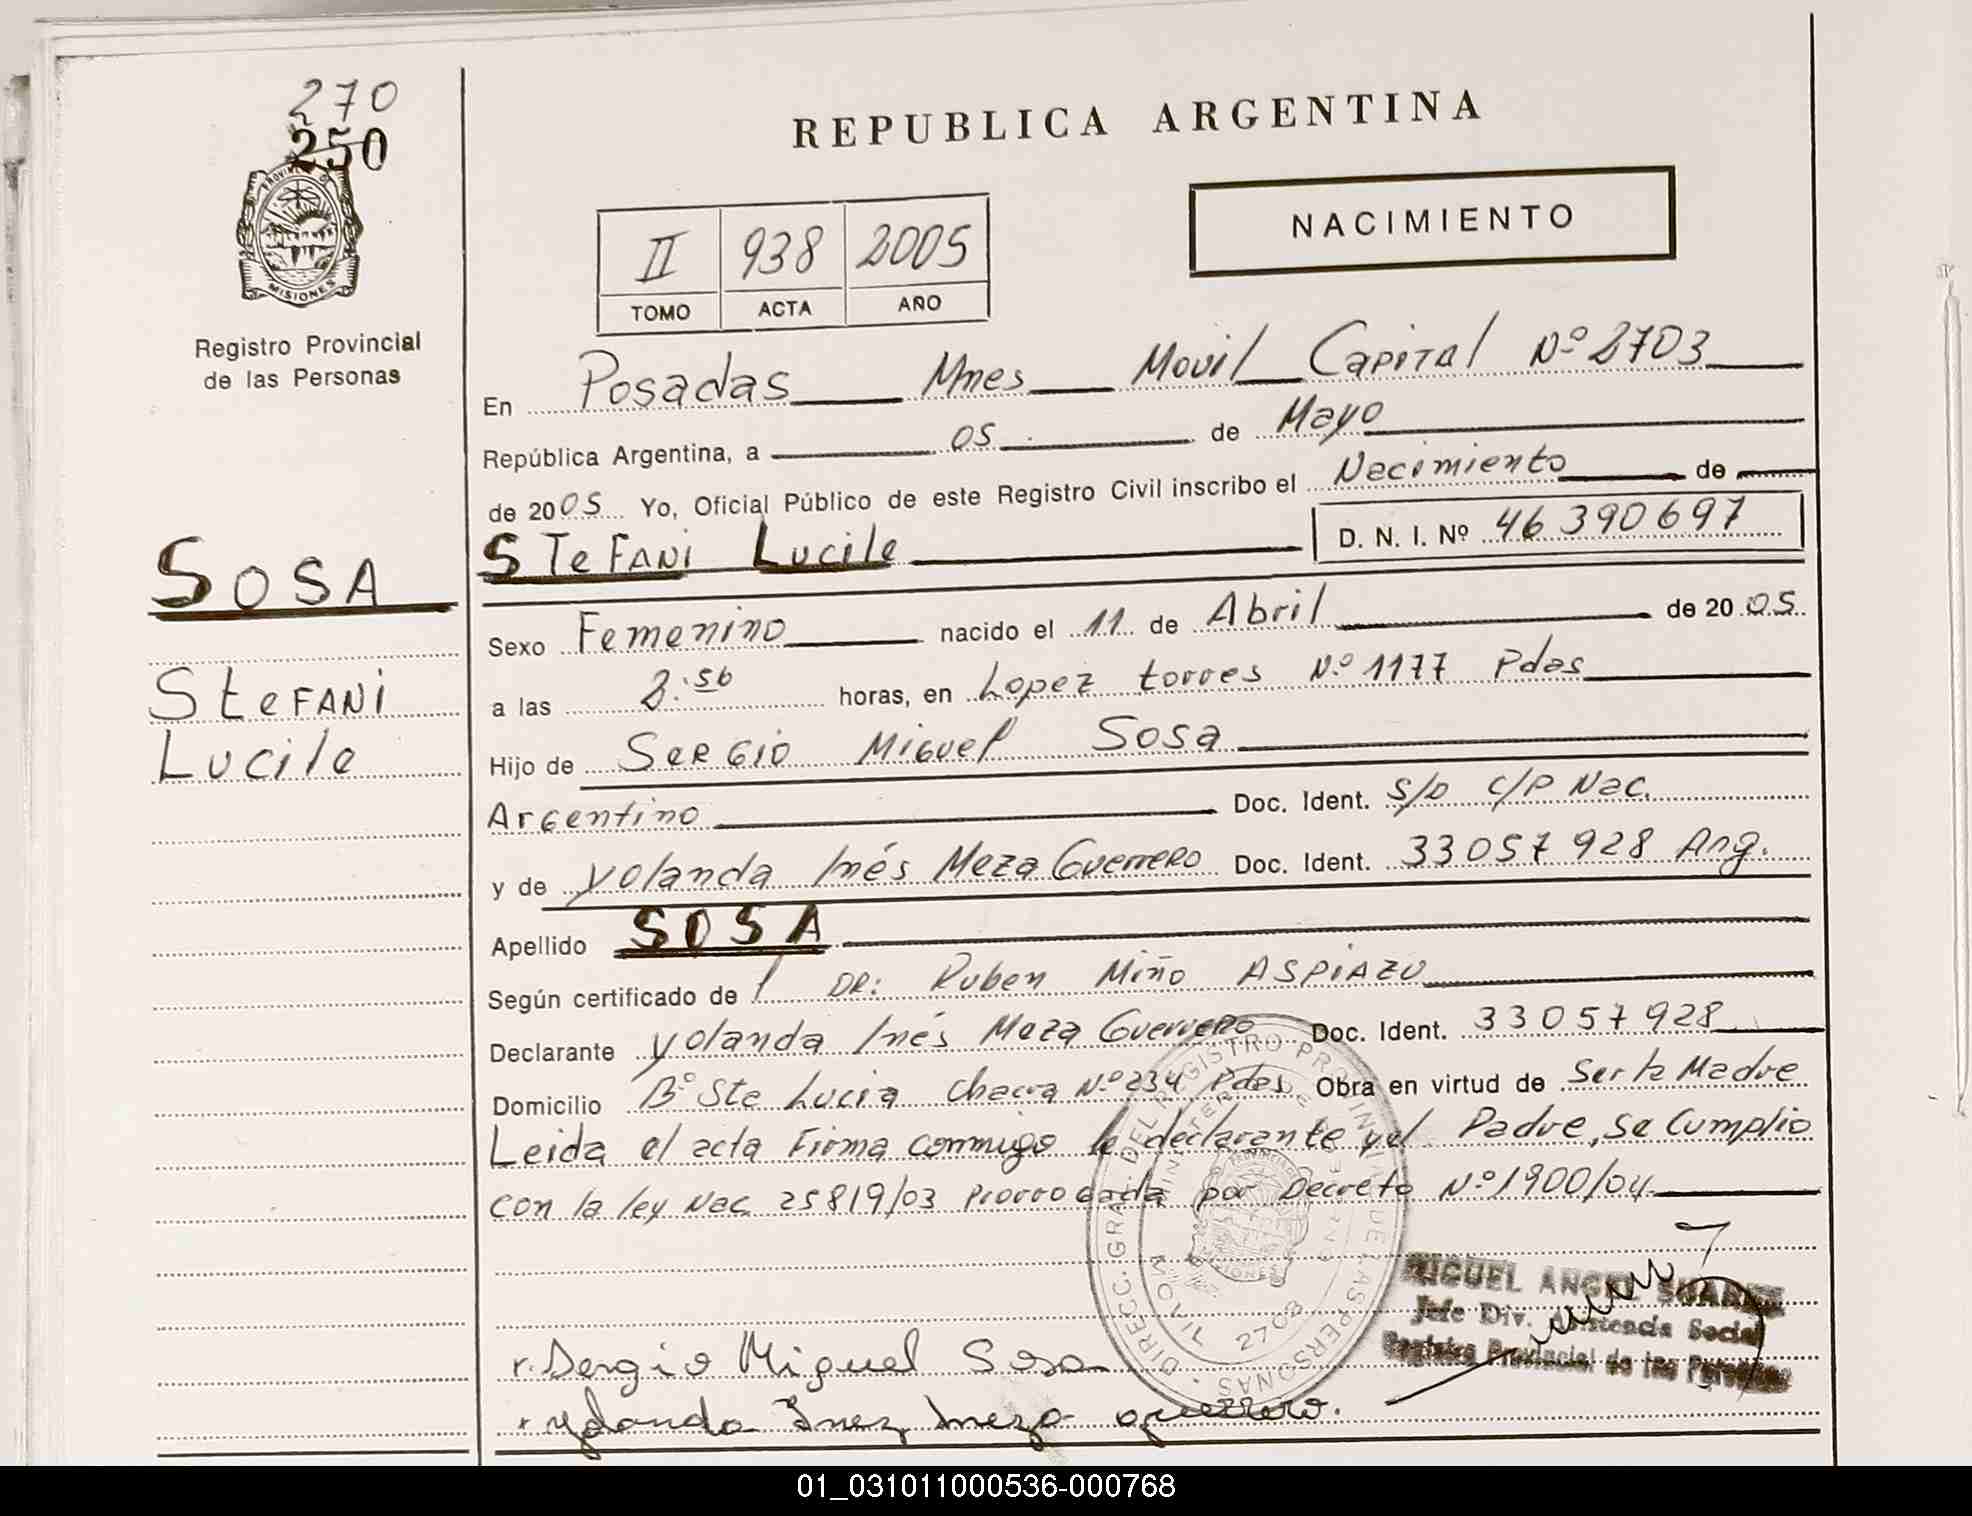 270
250
PROVINCIA DE
MISIONES
Registro Provincial
de las Personas
SOSA
SteFANi
Lucile
REPUBLICA ARGENTINA
NACIMIENTO
II 938 2005
TOMO ACTA AÑO
En Posadas Mnes Movil Capital Nº 2703
República Argentina, a 05 de Mayo
de 2005 Yo, Oficial Público de este Registro Civil inscribo el Nacimiento de
STeFANi Lucile D. N. I. Nº 46 390697
Sexo Femenino nacido el 11 de Abril de 2005
a las horas, en Lopez torres Nº 1177 Pdas
Hijo de SerGio Miguel Sosa
Argentino Doc. Ident. S/D C/P Nac.
y de Yolanda Inés Meza Guerrero Doc. Ident. 33 057 928 Arg.
Apellido SOSA
Según certificado de DR: Ruben Miño ASPiAZU
Declarante Yolanda Inés Meza Guerrero Doc. Ident. 33 057 928
Domicilio Bº Sta Lucia Chacra Nº 234 Pdas Obra en virtud de Ser la Madre
Leida el acta Firma conmigo la declarante y el Padre, se Cumplio
con la ley Nac 25819/03 Prorrogada por Decreto Nº 1900/04
DIRECC. GRAL. DEL REGISTRO PROVINCIAL DE LAS PERSONAS
MOVIL 2703
MIGUEL ANGEL SUAREZ
Jefe Div. Asistencia Social
Registro Provincial de las Personas
r. Sergio Miguel Sosa
r. yolanda Inez meza guerrero.
01_031011000536-000768